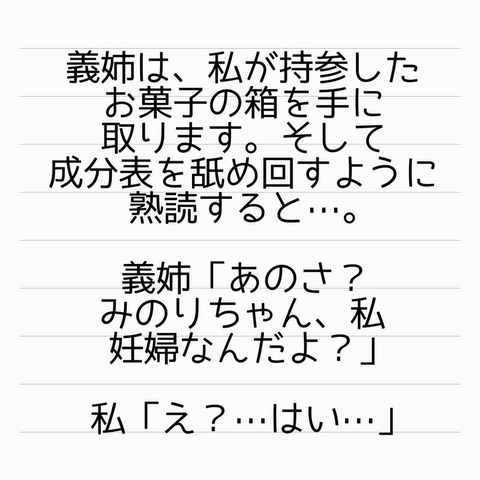 義姉は、私が持参した
お菓子の箱を手に
取ります。そして
成分表を舐め回すように
熟読すると…。
義姉「あのさ？
みのりちゃん、私
妊婦なんだよ？」
私「え？…はい…」